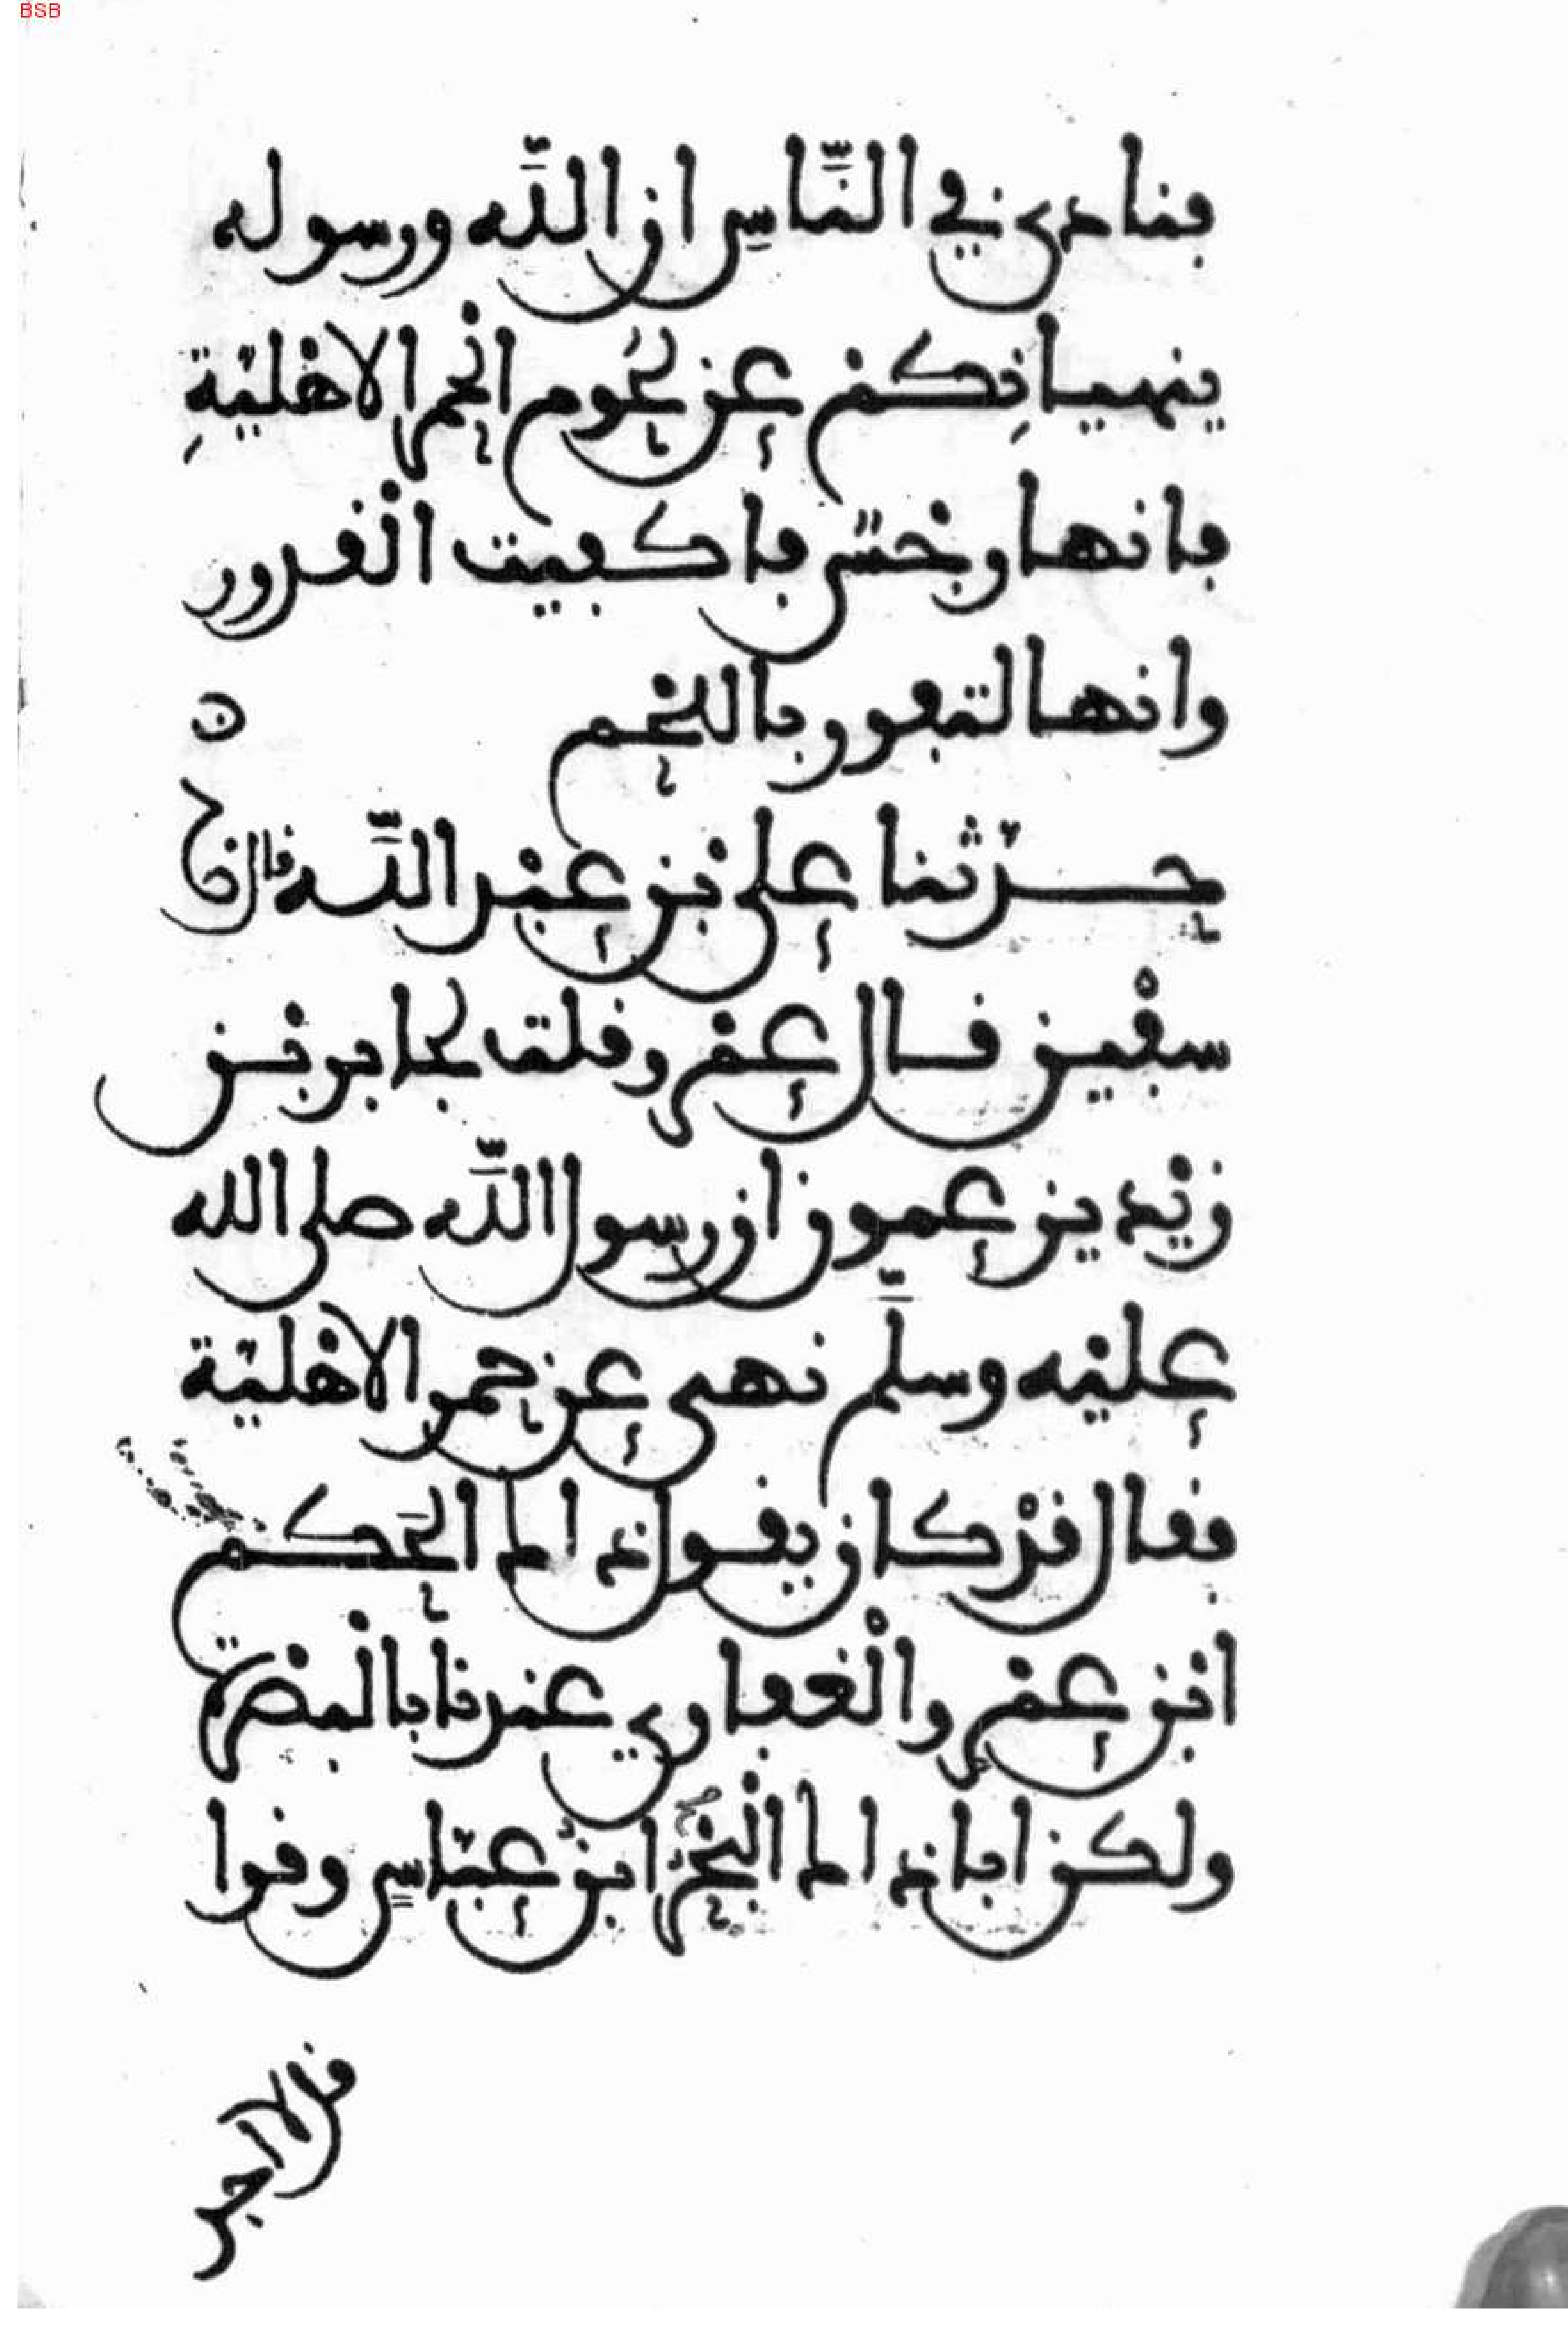 BSB
فنادى في النَّاسِ ان اللَّه ورسوله
ينهيانِكم عن لحُوم الحمر الاهليّةِ
فانها رجْسٌ فاكفيت القدور
وانها لتفور باللحم ن
حدّثنا علي بن عبد اللَّه قال نا
سفين قال عمرو قلت لجابر بن
زيد يزعمون ان رسول اللَّه صلى الله
عليه وسلَّم نهى عن حمر الاهلية
فقال قد كان يقول ذاك الحَكم
ابن عمرو الغفاري عندنا بالبصرة
ولكن ابا ذاك البحْرُ ابن عبّاسٍ وقرا
قل لا اجد